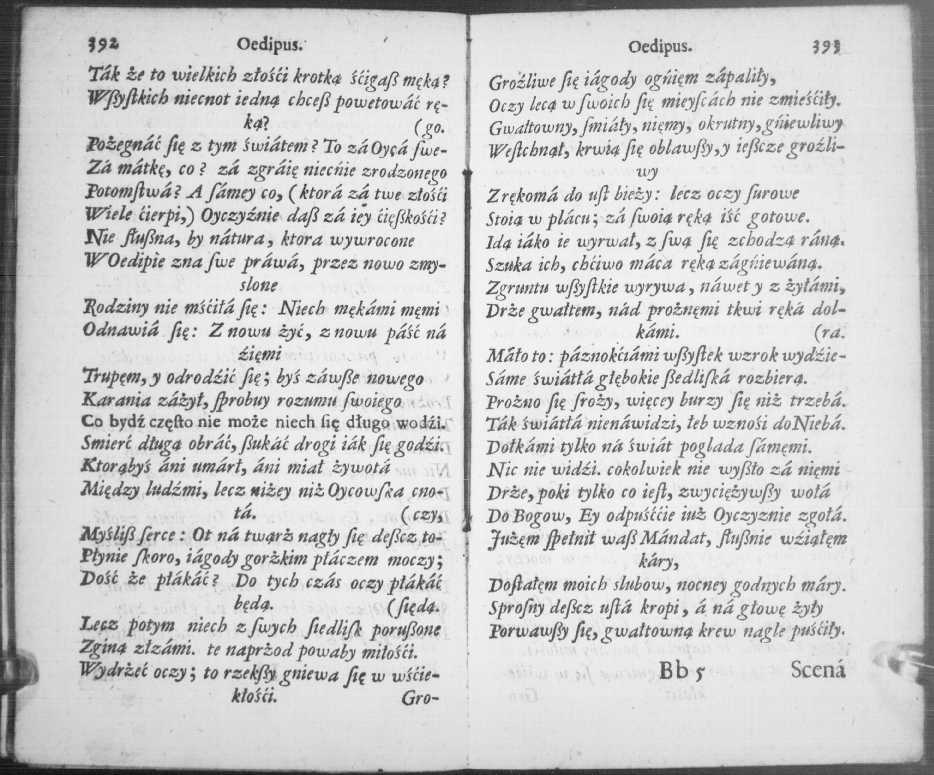 392 Oedipus.
Ták że to wielkich złośći krotką śćigaß męką?
Wßyſtkich niecnot iedną chceß powetowáć rę-
ką? (go.
Pożegnáć ſię z tym świátem? To zá Oycá ſwe-
Zá mátkę, co? zá zgráię niecńie zrodzonego
Potomſtwá? A ſámey co, (ktorá zá twe złośći
Wiele ćierpi,) Oyczyźnie daß zá iey ćięßkośći?
Nie ſlußna, by nátura, ktora wywrocone
W Oedipie zna ſwe práwá, przez nowo zmy-
slone
Rodziny nie mśćiłá ſię: Niech mękámi męmi
Odnawiá ſię: Z nowu żyć, z nowu páść ná
źięmi
Trupęm, y odrodźić ſię; byś záwße nowego
Karania záżył, ſprobuy rozumu ſwoiego
Co bydź często nie może niech ſię długo wodźi.
Smierć długą obráć, ßukáć drogi iák ſię godźi.
Ktorąbyś áni umárł, áni miał żywotá
Między ludźmi, lecz niżey niż Oycowſka cno-
tá. (czy,
Myśliß ſerce: Ot ná twarz nagły ſię deßcz to-
Płynie ſkoro, iágody gorżkim płáczem moczy;
Dość że płákáć? Do tych czás oczy płákáć
będą. (ſiędą.
Lecz potym niech z ſwych ſiedliſk porußone
Zginą złzámi. te naprżod powaby miłośći.
Wydrżeć oczy; to rzekßy gniewa ſię w wśćie-
kłośći. Gro-
393 Oedipus.
Groźliwe ſię iágody ogńięm zápaliły,
Oczy lecą w ſwoich ſię mieyſcách nie zmieśćiły.
Gwałtowny, ſmiáły, nięmy, okrutny, gńiewliwy
Weſtchnął, krwią ſię oblawßy, y ießcze groźli-
wy
Z rękomá do uſt bieży: lecz oczy ſurowe
Stoią w plácu; zá ſwoią ręką iść gotowe.
Idą iáko ie wyrwał, z ſwą ſię zchodzą ráną.
Szuka ich, chćiwo máca ręką zágńiewáną.
Zgruntu wßyſtkie wyrywa, náwet y z żyłámi,
Drże gwałtem, nád prożnęmi tkwi ręká doł-
kámi. (ra.
Máło to: páznokćiámi wßyſtek wzrok wydźie-
Sáme świátłá głębokie ßedliſká rozbierą.
Prożno ſię ſroży, więcey burzy ſię niż trzebá.
Ták świátłá nienáwidzi, łeb wznośi do Niebá.
Dołkámi tylko ná świát poglada ſámęmi.
Nic nie widźi. cokolwiek nie wyßło zá nięmi
Drże, poki tylko co ieſt, zwyciężywßy wołá
Do Bogow, Ey odpuśććie iuż Oyczyznie zgołá.
Jużęm ſpełnił waß Mándat, ſlußnie wźiąłęm
káry,
Doſtałęm moich slubow, nocney godnych máry.
Sproſny deßcz uſtá kropi, á ná głowę żyły
Porwawßy ſię, gwałtowną krew nagle puśćiły.
Bb 5 Scená